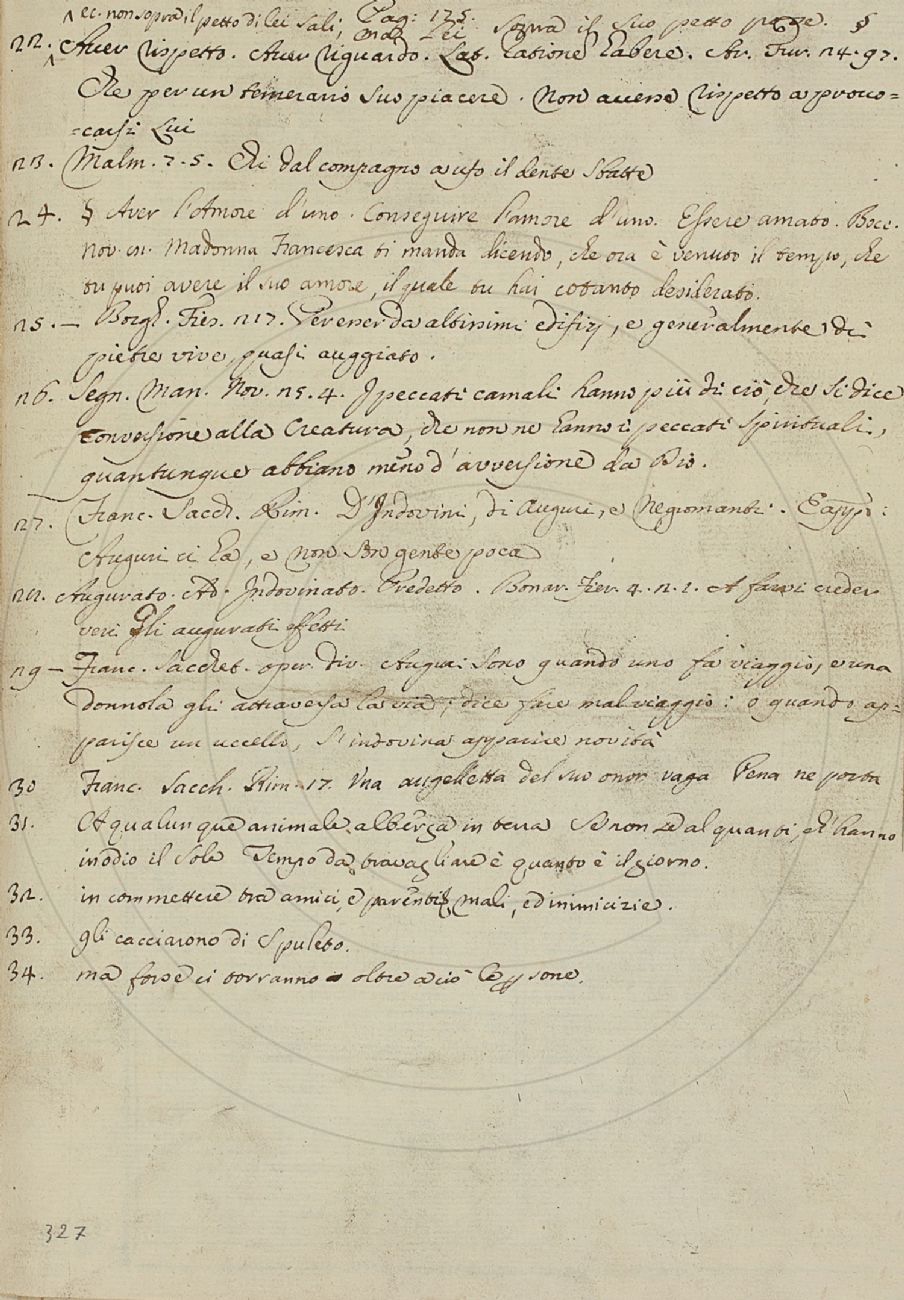 Pag: 175.
ec. non sopra il petto di lei sali; ma Lei sopra il suo petto pose. §
22. Aver rispetto. Aver riguardo. Lat. ratione habere. Ar. Fur. 24. 97.
Che per un temerario suo piacere. Non avesse rispetto a provo=
=carsi Lui
23. Malm. 7. 5. Chi dal compagno a ufo il dente sbatte
24. § Aver l'Amore d'uno. Conseguire l'amore d'uno. Essere amato. Bocc.
Nov. 81. Madonna Francesca ti manda dicendo, che ora è venuto il tempo, che
tu puoi avere il suo amore, il quale tu hai cotanto desiderato.
25. — Borgh. Fies. 217. Per esser da altissimi edifizj, e generalmente di
pietre vive, quasi auggiato.
26. Segn. Man. Nov. 25. 4. I peccati carnali hanno più di ciò, che si dice
conversione alla Creatura, che non ne hanno i peccati spirituali,
quantunque abbiano meno d'avversione da Dio.
27. Franc. Sacch. Rim. D'Indovini, di Auguri, e Negromanti. E app:
Auguri ci ha, e non son gente poca
28. Augurato. Ad. Indovinato. Predetto. Bonar. Fier. 4. 2. 7. A farvi creder
veri gli augurati effetti
29 — Franc. Sacchet. oper. div. Auguri sono quando uno fa viaggio, e una
donnola gli attraversa la via; dice fare mal viaggio: o quando ap=
parisce un uccello, s'indovina apparire novità
30 Franc. Sacch. Rim. 17. Una augelletta del suo onor vaga Pena ne porta
31. A qualunque animale alberga in terra Se non se alquanti, ch'hanno
in odio il Sole Tempo da travagliare è quanto è il giorno.
32. in commettere tra amici, e parenti mali, ed inimicizie.
33. gli cacciarono di Spuleto.
34. ma forse ci torranno oltre a ciò le persone.
327